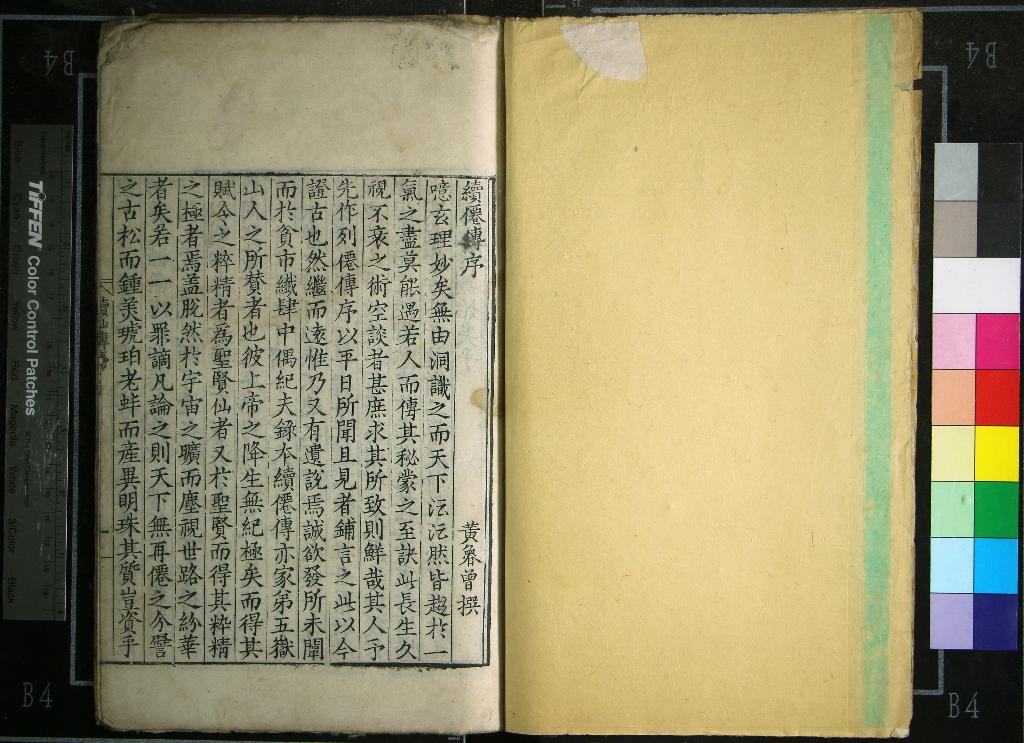 續僊傳序
黃魯曾撰
噫玄理妙矣無由洞識之而天下沄沄然皆趨於一
氣之盡莫能遇若人而傳其秘蒙之至訣此長生久
視不衰之術空談者甚庶求其所致則鮮哉其人予
先作列僊傳序以平日所聞且見者鋪言之此以今
證古也然繼而遠惟乃又有遺說焉誠欲發所未闡
而於貧市纎肆中偶紀夫錄本續僊傳亦家第五嶽
山人之所賛者也彼上帝之降生無紀極矣而得其
賦令之粹精者為聖賢仙者又於聖賢而得其粋精
之極者焉盖脫然於宇宙之曠而塵視世路之紛華
者矣若一一以罪謫凡論之則天下無再僊之今譬
之古松而鍾美琥珀老蚌而產異明珠其質豈資乎
續仙傳序
TIFFEN Color Control Patches
Blue Cyan Green Yellow Red Magenta White 3/Color Black
B4
B4
B4
B4